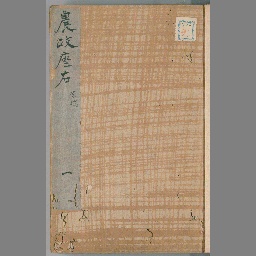 農政座右
一